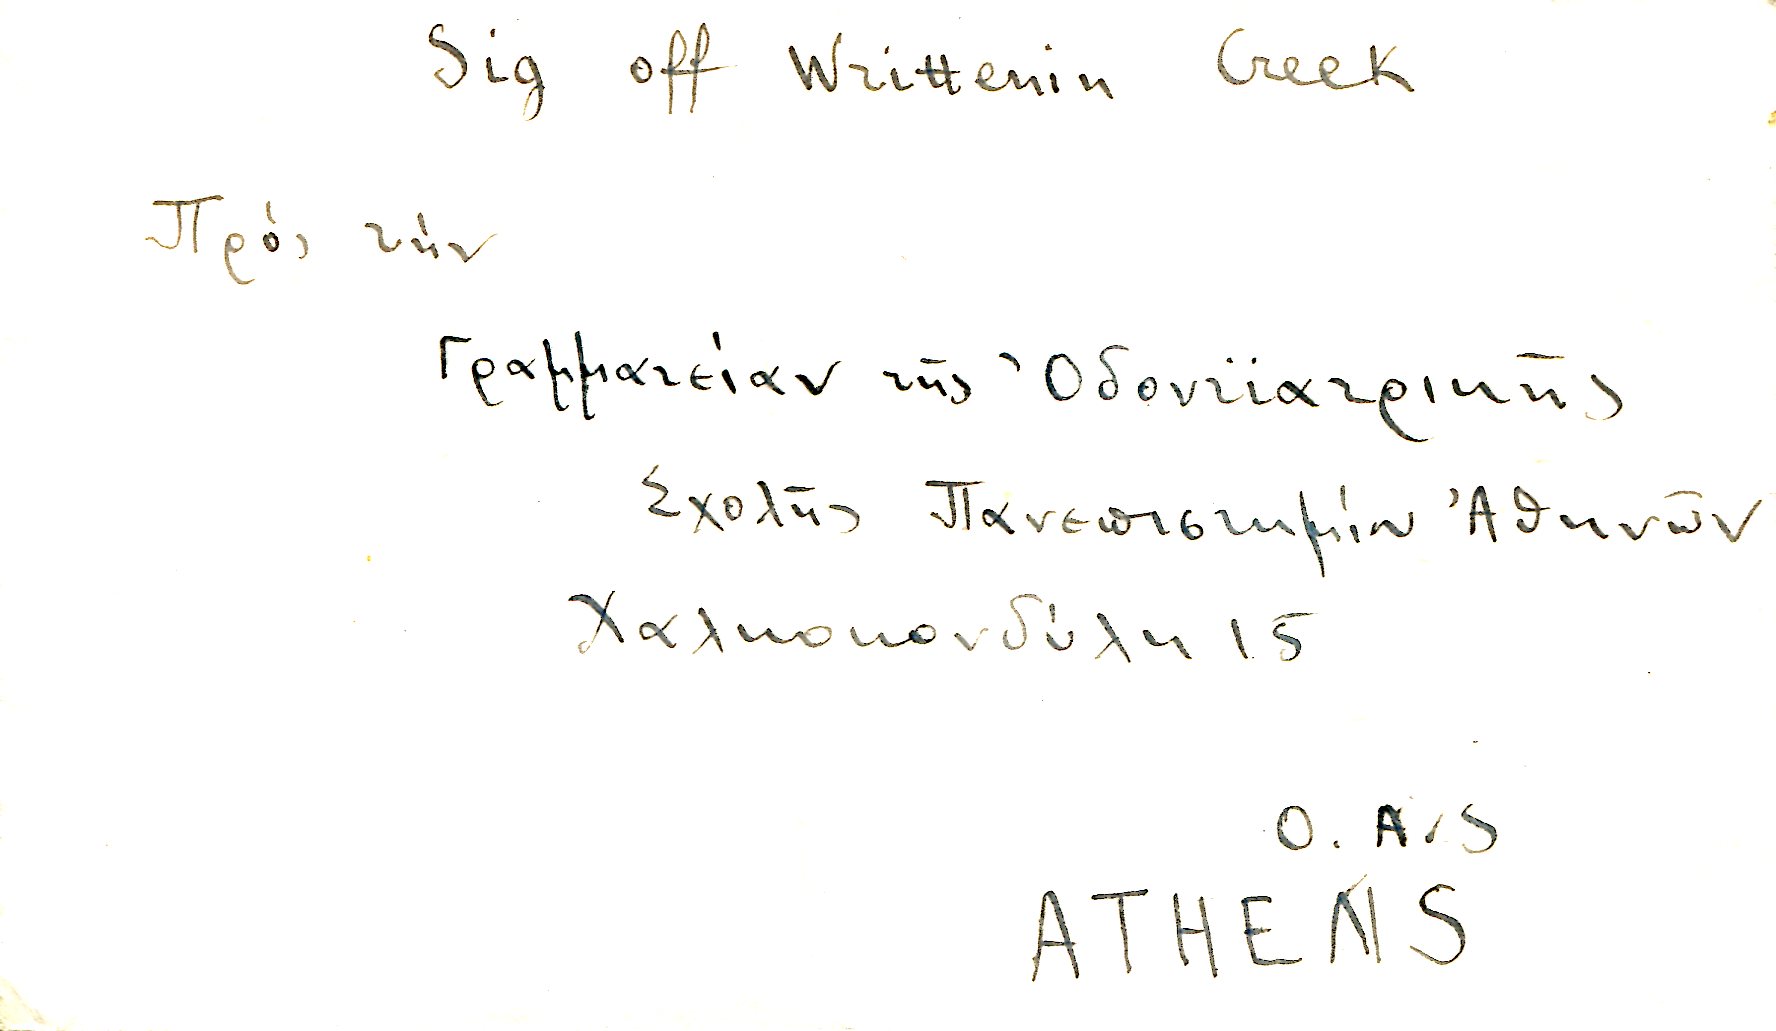 Sig off Writtenin Greek
Πρός τήν
Γραμματείαν τῆς Ὀδοντϊατρικῆς
Σχολῆς Πανεπιστημίου Ἀθηνῶν
Χαλκοκονδύλη 15
O. A. S
ATHENS